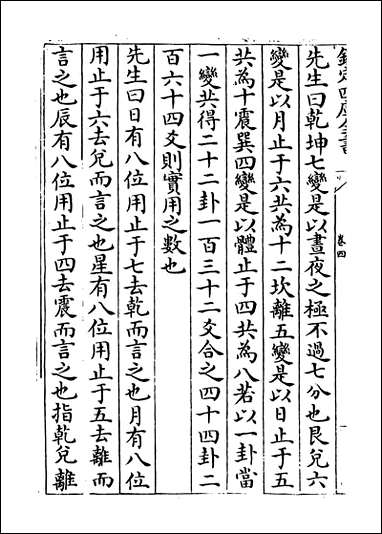 欽定四庫全書
卷四
先生曰乾坤七變是以晝夜之極不過七分也艮兌六
變是以月止于六共為十二坎離五變是以日止于五
共為十震巽四變是以體止于四共為八若以一卦當
一變共得二十二卦一百三十二爻合之四十四卦二
百六十四爻則實用之數也
先生曰日有八位用止于七去乾而言之也月有八位
用止于六去兌而言之也星有八位用止于五去離而
言之也辰有八位用止于四去震而言之也指乾兌離